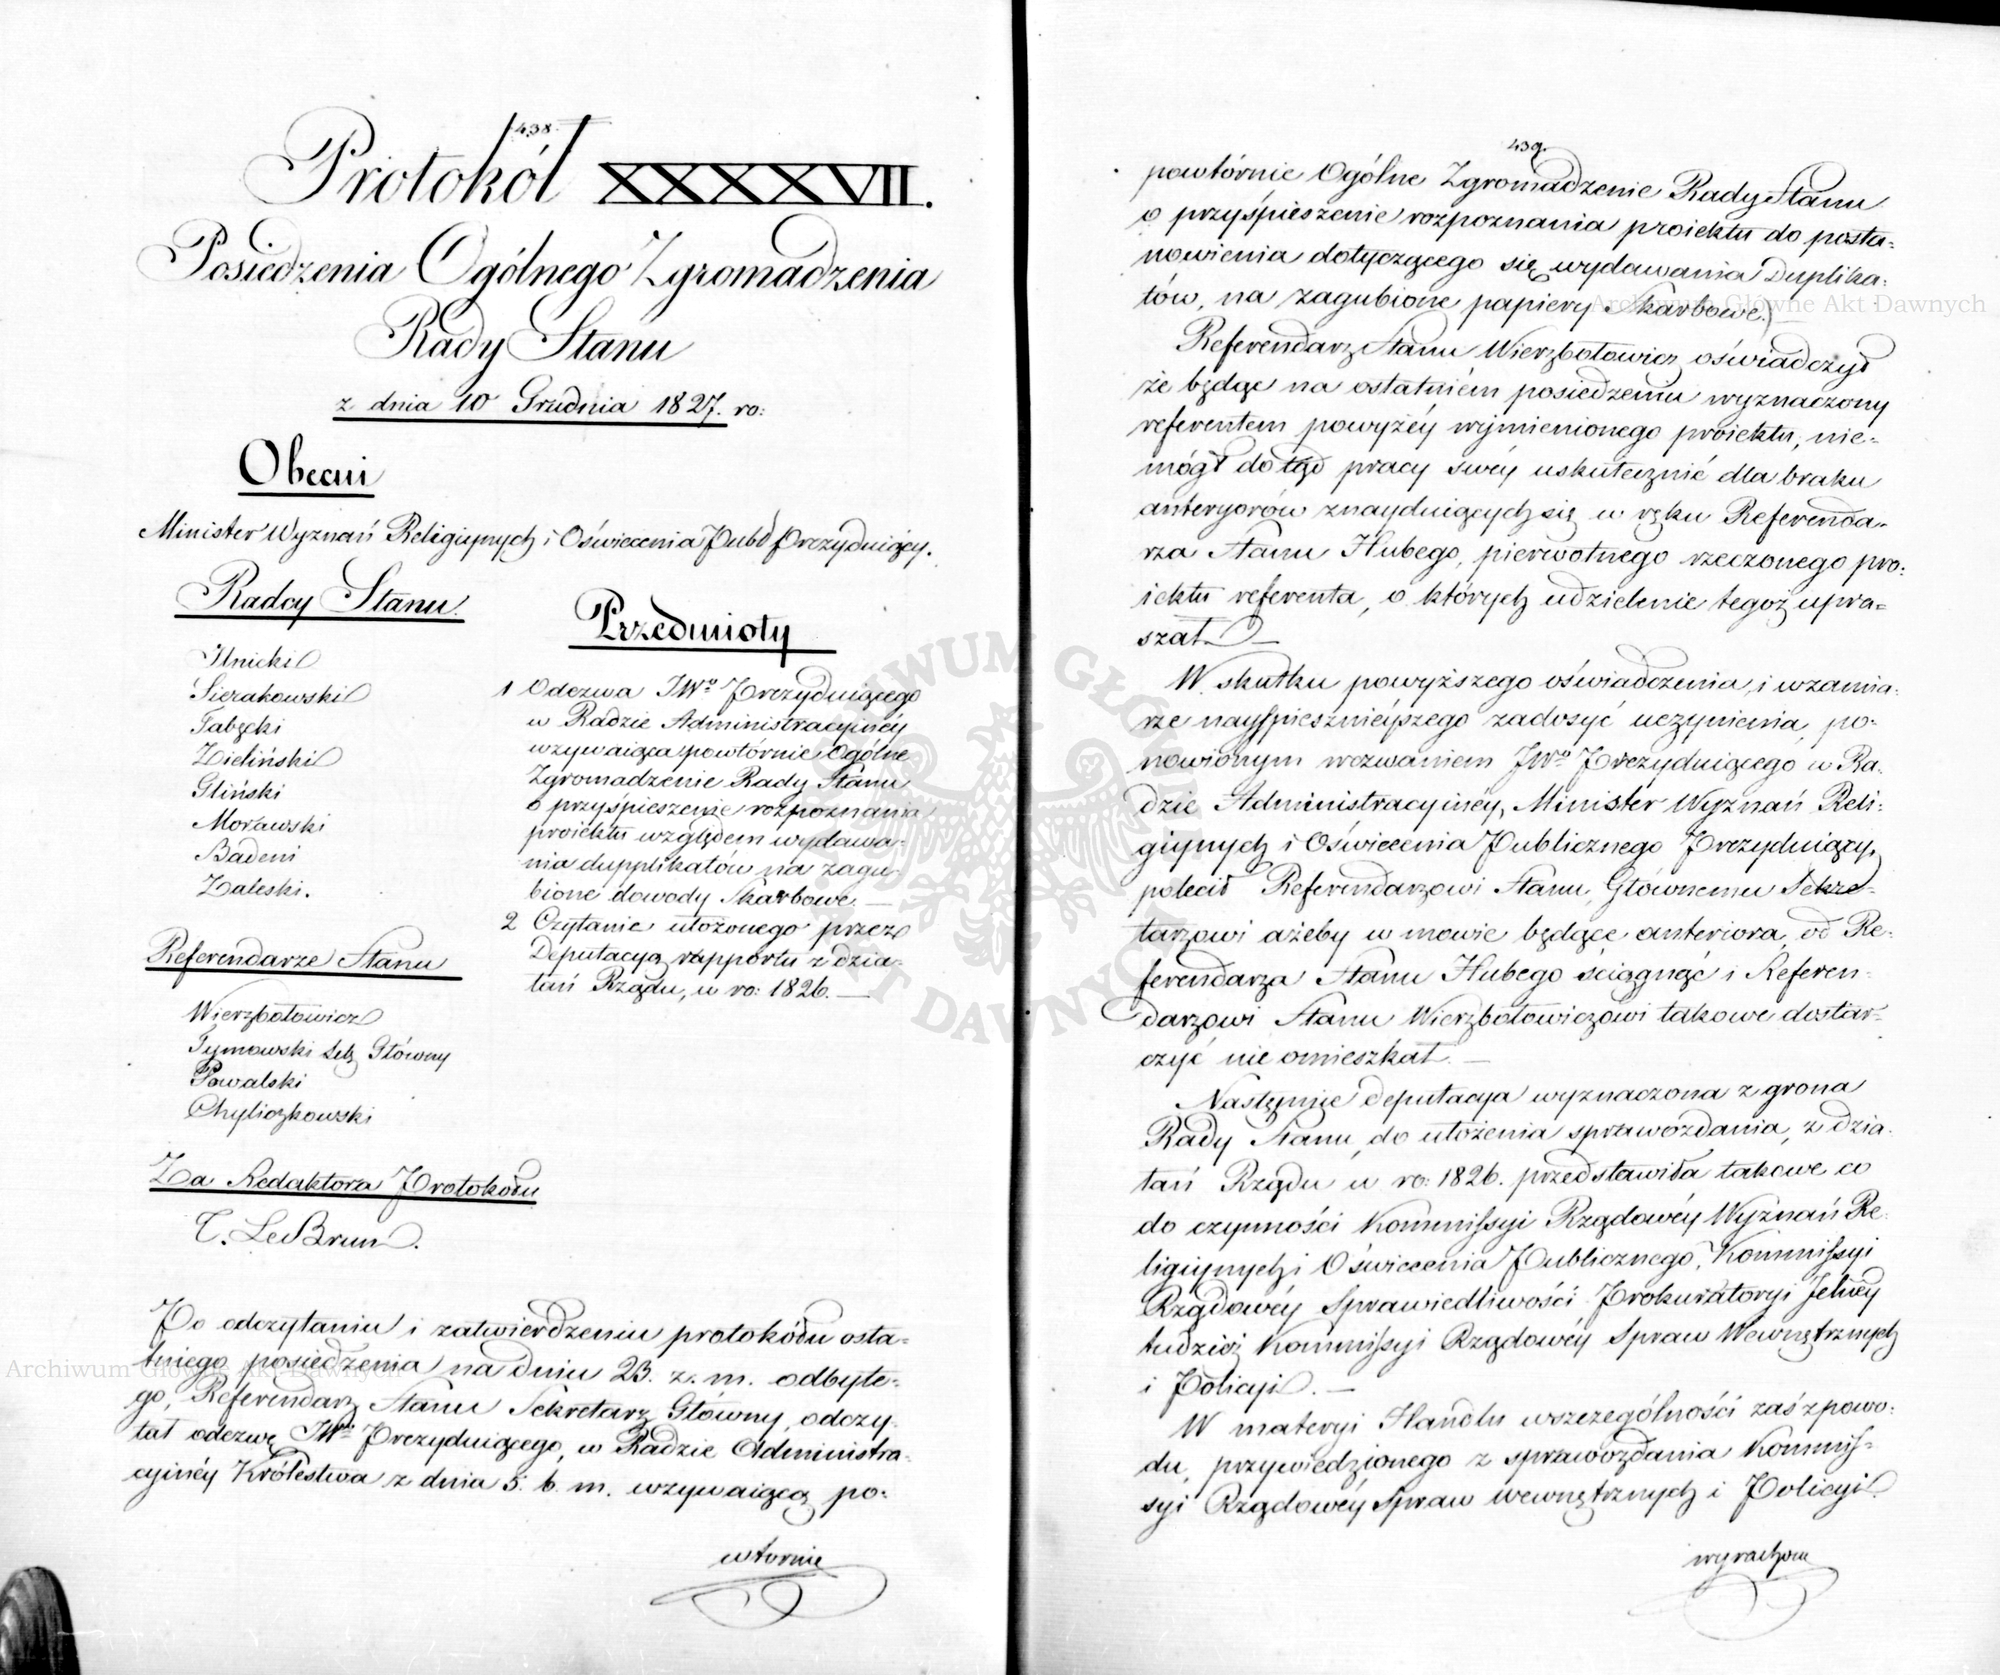 438.
Protokół XXXXVII.
Posiedzenia Ogólnego Zgromadzenia
Rady Stanu
z dnia 10 Grudnia 1827. ro:
Obecni
Minister Wyznań Religiynych i Oświecenia Pub: Prezyduiący.
Radcy Stanu.
Ilnicki
Sierakowski
Tabęcki
Zieliński
Gliński
Morawski
Badeni
Zaleski.
Referendarze Stanu
Wierzbołowicz
Tymowski Sek: Główny
Powalski
Chyliczkowski
Za Redaktora Protokółu
T. Le Brun.
Przedmioty
1 Odezwa JWo Prezyduiącego
w Radzie Administracyinéy
wzywaiąca powtórnie Ogólne
Zgromadzenie Rady Stanu
o przyśpieszenie rozpoznania
proiektu względem wydawa-
nia dupplikatów na zagu-
bione dowody Skarbowe. —
2 Czytanie ułożonego przez
Deputacyą rapportu z dzia-
łań Rządu, w ro: 1826. —
Po odczytaniu i zatwierdzeniu protokółu osta-
tniego posiedzenia na dniu 23. z. m. odbyte-
go, Referendarz Stanu Sekretarz Główny, odczy-
tał odezwę JWo Prezyduiącego, w Radzie Administra-
cyinéy Królestwa z dnia 5. b. m. wzywaiącą po-
wtornie
439.
powtórnie Ogólne Zgromadzenie Rady Stanu
o przyśpieszenie rozpoznania proiektu do posta-
nowienia dotyczącego się wydawania Duplika-
tów, na zagubione papiery Skarbowe.
Referendarz Stanu Wierzbołowicz oświadczył
że będąc na ostatniém posiedzeniu wyznaczony
referentem powyżéy wymienionego proiektu, nie-
mógł dotąd pracy swéy uskutecznić dla braku
anteryorów znayduiących się w ręku Referenda-
rza Stanu Hubego, pierwotnego rzeczonego pro-
iektu referenta, o których udzielenie tegoż upra-
szał. —
W skutku powyższego oświadczenia, i w zamia-
rze nayspieszniéyszego zadosyć uczynienia, po-
nowionym wezwaniem JWo Prezyduiącego w Ra-
dzie Administracyinéy, Minister Wyznań Reli-
giynych i Oświecenia Publicznego Prezyduiący,
polecił Referendarzowi Stanu, Głównemu Sekre-
tarzowi ażeby w mowie będące anteriora, od Re-
ferendarza Stanu Hubego ściągnąć i Referen-
darzowi Stanu Wierzbołowiczowi takowe dostar-
czyć nie omieszkał. —
Następnie deputacya wyznaczona z grona
Rady Stanu, do ułożenia sprawozdania, z dzia-
łań Rządu w ro: 1826. przedstawiła takowe co
do czynności Kommissyi Rządowéy Wyznań Re-
ligiynych i Oświecenia Publicznego, Kommissyi
Rządowéy Sprawiedliwości Prokuratoryi Jelnéy
tudzież Kommissyi Rządowéy Spraw Wewnętrznych
i Policyi. —
W materyi Handlu wszczególności zaś z powo-
du, przywiedzionego z sprawozdania Kommis-
syi Rządowéy Spraw Wewnętrznych i Policyi
wyrachow
Archiwum Główne Akt Dawnych
Archiwum Główne Akt Dawnych
ARCHIWUM GŁÓWNE AKT DAWNYCH